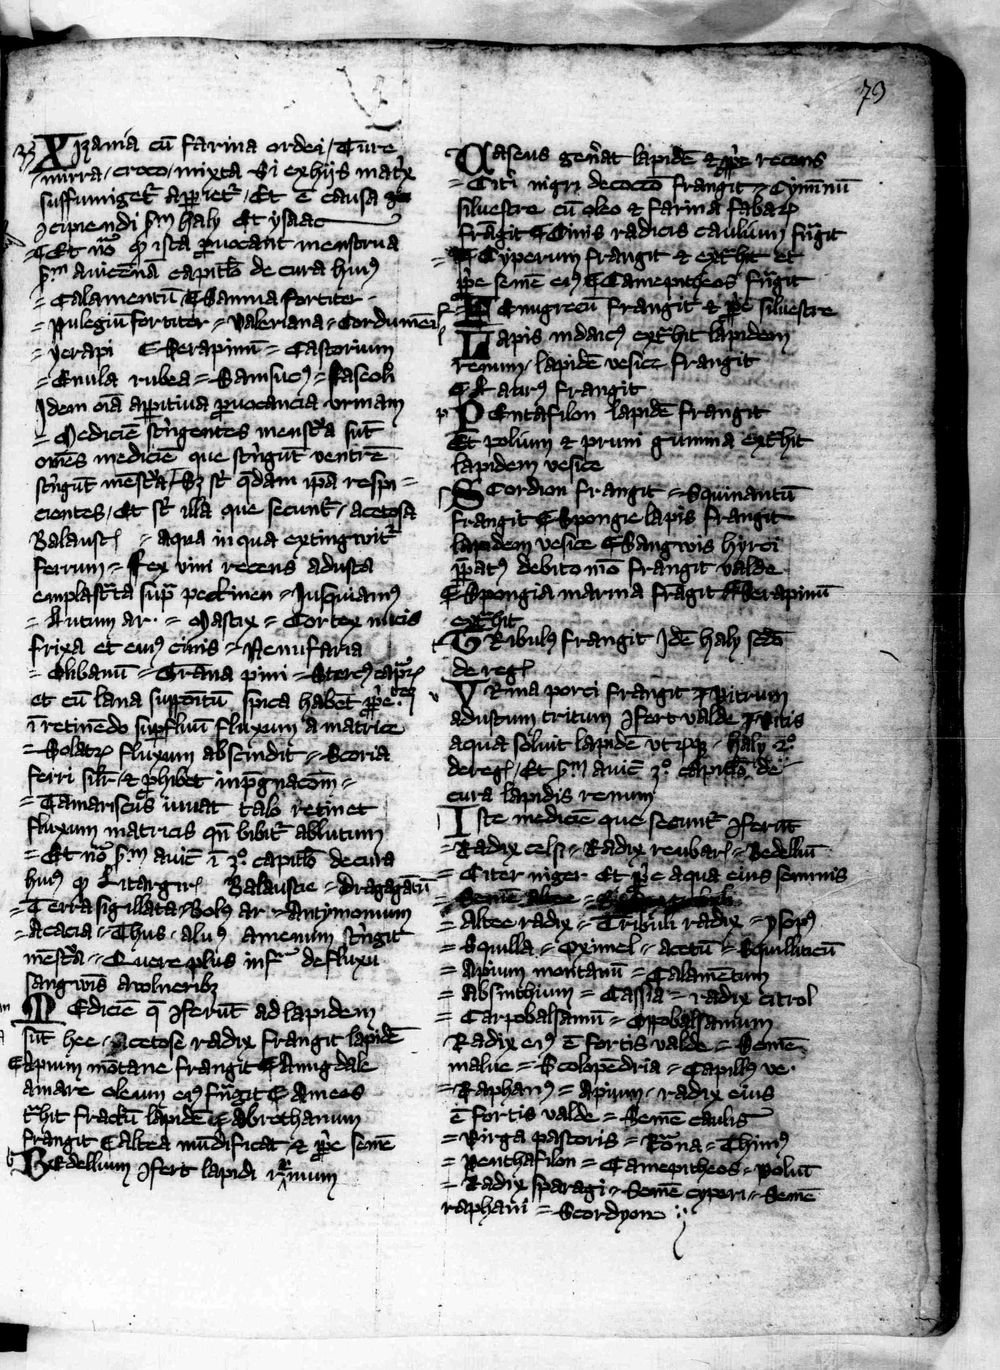 79
Xizania cu᷃ farina ordei / Ture
mirra / croco / mixta Si ex hijs mat͛x
suffumiget᷑ ap͛iet᷑ / Et e᷃ causa
ꝯcipiendi ẜm haly Et ysaac
Et no͛ ꝙ ista ꝓuocant menstrua
ẜm auice᷃na᷃ capitło de cura huiꝰ
= Calamentu᷃ Chamia fortiter
= Pulegiu᷃ fortiter = Valeriana = Cordume᷃i
= yerapi Serapinu᷃ = Castorium
= Enula rubea = Samsucꝰ = Faseoli
Idem oi᷃a ap͛itiua ꝓuocancia vrinam
= Medicie᷃ st͛ngentes menst͛a su᷃t
om᷃es medicie᷃ que st͛ngu᷃t ventre᷃
st͛ngu᷃t me᷃st͛a / Sꝫ s͛t q᷃dam ip᷃a respi =
cientes / Et s͛t illa que secunt᷑ / acetosa
Balaust = aqua in qua extingwit᷑
ferrum = Fex vini recens adusta
emplast͛ta sup᷑ pectinen = Iusquiamꝰ
= Lutum ar· = Mastix = Cortex nucis
frixa et eiuꝰ cinis = Nenufaria
= Olibanu᷃ = Grana pini = Stercꝰ cap͛ꝝ
et cu᷃ lana supp᷃oitu᷃ spica habet
i᷃ retine᷃do supfluu᷃ fluxum a matrice
= Solatꝝ fluxum abscindit = Scoria
ferri silr᷑ & ꝓhibet inp᷑gnaco᷃m =
= Tamariscus iuuat talo retinet
fluxum matricis qn᷃ bibit᷑ ablutum
= Et no͛ ẜm auic᷃ i᷃ 3º. capitło de cura
huiꝰ ꝙ Litargirꝝ Balaustie = dragagantu᷃
= Terra sigillata = Bolꝰ ar = Antymonium
= Acacia = Thus = aluꝰ amenum st͛ngit
me᷃st͛a = Quere plus inf᷑ de fluxu
sangwi᷃s a wlneribꝫ
Medicie᷃ q᷃ ꝯferu᷃t ad lapidem
su᷃t hee = Acetose radix frangit lapide᷃
Capium mo᷃tane frangit Camigdale
amare oleum eiꝰ fr᷑ngit C Ameos
t͛hit fractu᷃ lapide᷃ C Abrothanum
frangit C altea mu᷃dificat & ꝓp᷑e seme᷃
Bedellium ꝯfert lapidi renum
Caseus gen᷑at lapide᷃ & ꝓp᷑e recens
= Citi nigri decocco᷃ frangit = Cym᷃inu᷃
siluestre cu᷃ oleo & farina fabaꝝ
frangit C Cinis radicis caulium fr᷑ngit
= Cyperum frangit & ext͛hit et
ꝓp᷑e seme᷃ eiꝰ C Camepitheos fr᷑ngit
Fenugrecu᷃ frangit & ꝓp᷑e siluestre
Lapis iudaicꝰ ext͛hit lapidem
renum / lapide᷃ vesice frangit
frangit
Pentafilon lapide᷃ frangit
Et polium & pruni gumma ext͛hit
lapidem vesice
Scordion frangit = Squinantu᷃
frangit C Spongie lapis frangit
lapidem vesice C Sangwis hyrci
p᷑patꝰ debito mo᷃ frangit valde
C Spongia marina frangit C Serapinu᷃
ext͛hit
Tribulꝰ frangit Ide᷃ haly sedo᷃
de reg
Vrina porci frangit = vitrum
adustum tritum ꝯfert valde = Vitis
aqua soluit lapide᷃ vt haly 2º.
de reg / Et ẜm auic᷃ 3º. capitło de
cura lapidis renum
Iste medicie᷃ que secunt᷑ ꝯferu᷃t
= Radix celsi = Radix reubar = Bedelliu᷃
= Citer niger Et ꝓp᷑e aqua eius seminis
= Altee radix = Tribuli radix = ysopꝰ
= Squilla = Oximel = acetu᷃ = Squilliticu᷃
= Apium montanu᷃ = Calame᷃tum
= Absinthium = Cassia = radix citrol
= Carpobalsamu᷃ = Opobalsamum
Radix eiꝰ e᷃ fortis valde = Seme᷃
malue = Scolope᷃dria = Capillꝰ ve·
= Raphanꝰ = Apium / radix eius
e᷃ fortis valde = Seme᷃ caulis
= Virga pastoris = Ro᷃na = Thimꝰ
= Penthafilon = Camepitheos = poliu᷃
= Radix sparagi = Seme᷃ cyperi = Seme᷃
raphani = Scordyon